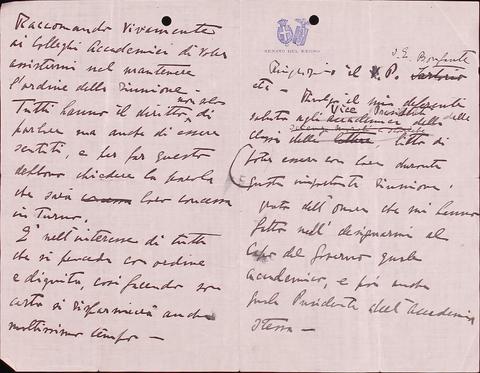 Raccomando vivamente
ai Colleghi Accademici di voler
assistermi nel mantenere
l'ordine della riunione -
non solo
Tutti hanno il diritto di
parlare ma anche di essere
sentiti, e per far questo
debbono chiedere la parola
che sarà loro concessa
in turno.
È nell'interesse di tutti
che si proceda con ordine
e dignità, così facendo son
certo si risparmierà anche
moltissimo tempo -
SENATO DEL REGNO
S.E. Bonfante
Ringrazio il P. Sartorio
etc - Porgo il mio deferente
Vice Presidente delle
saluto agli Accademici della
classi delle lettere lieto di
poter essere con loro durante
questa importante riunione.
grato dell'onore che mi hanno
fatto nell'designarmi al
Capo del Governo quale
Accademico, e poi anche
quale Presidente dell'Accademia
stessa -